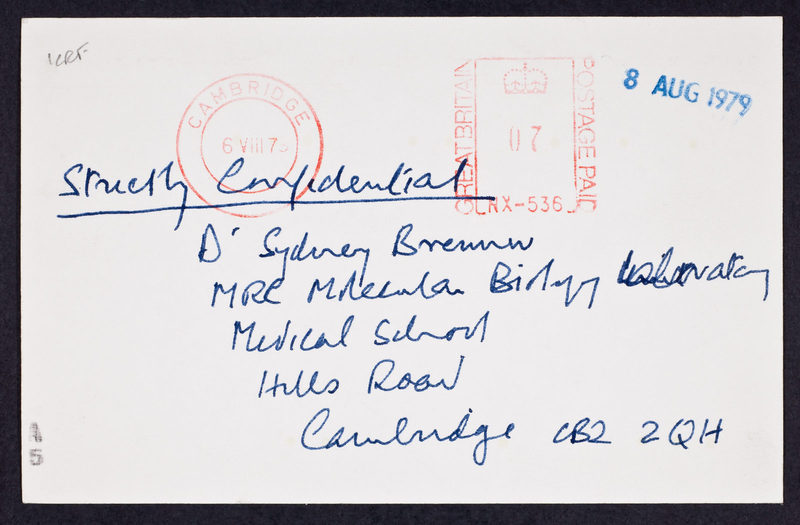 KRF
8 AUG 1979
CAMBRIDGE
6 VIII 79
GREAT BRITAIN
07
POSTAGE PAID
RX-536
Strictly Confidential
Dr Sydney Brenner
MRC Molecular Biology Laboratory
Medical School
Hills Road
Cambridge CB2 2QH
1
5